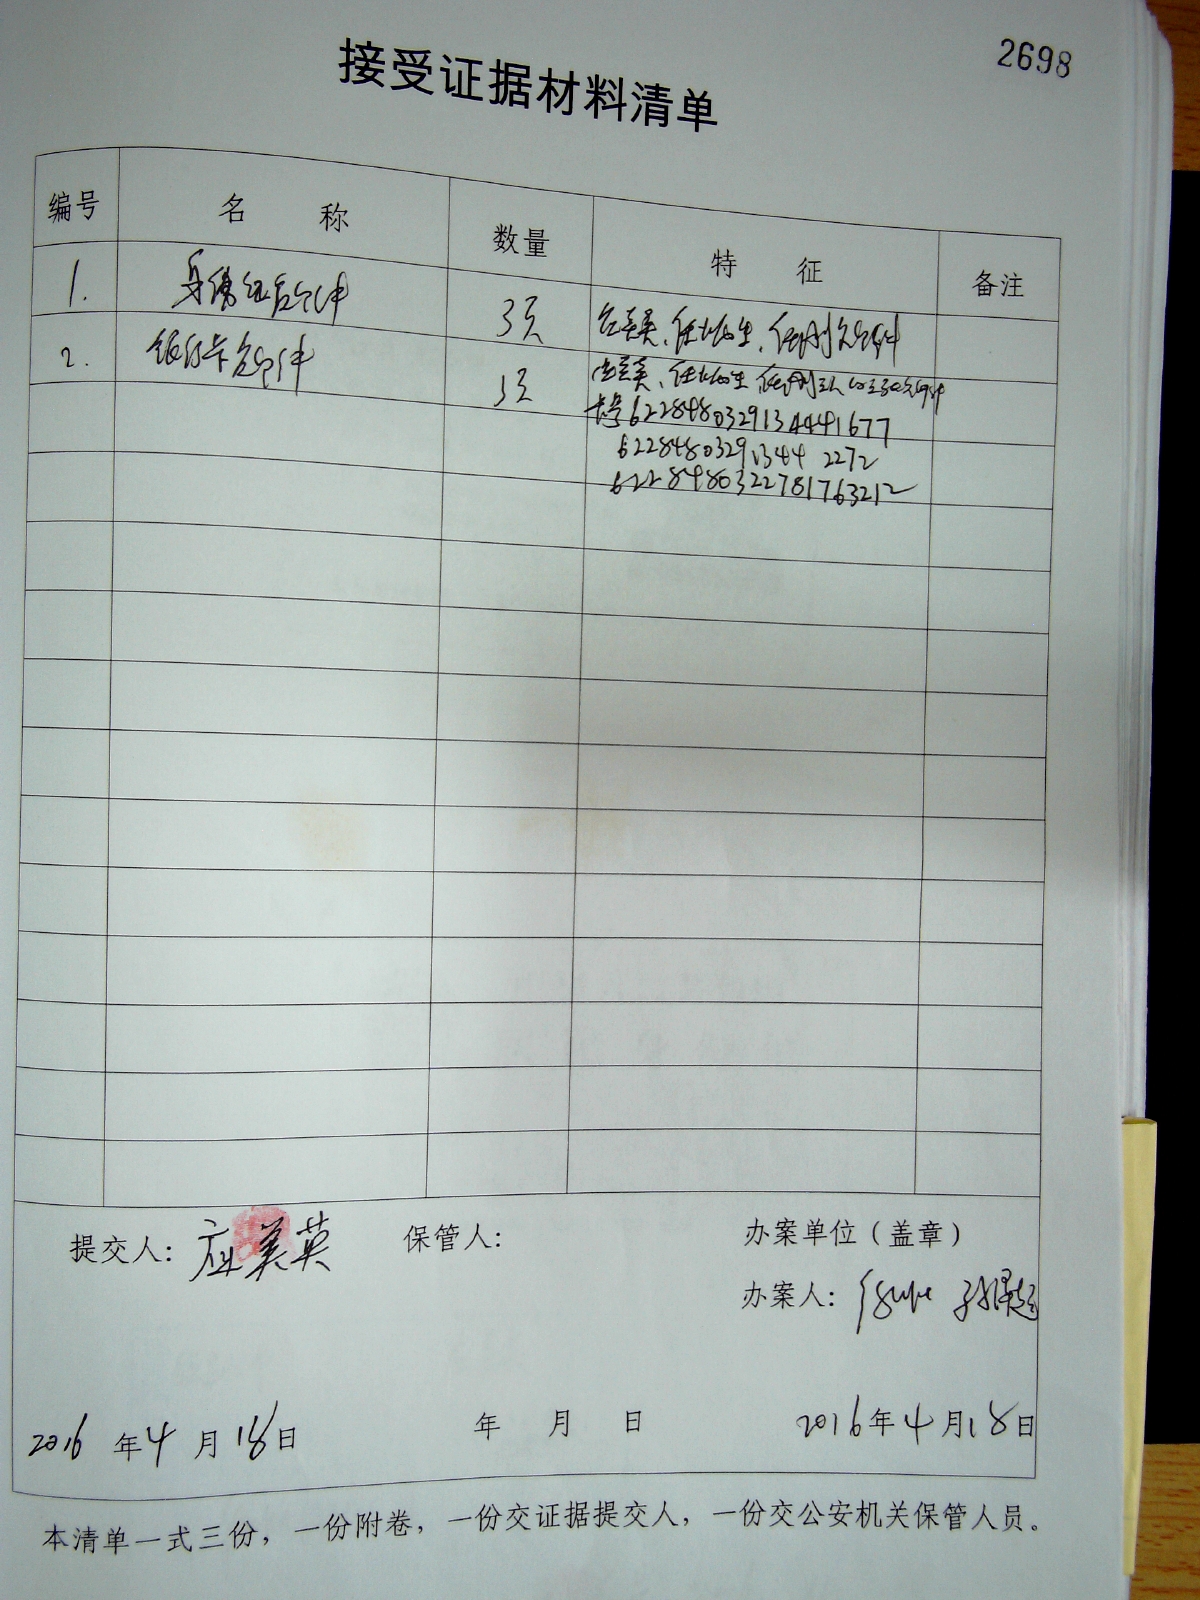 2698
接受证据材料清单
编号 名称 数量 特征 备注
1. 身份证复印件 3页
2. 银行卡复印件 3页
卡号6228480329134441677
622848032913442272
6228480322781763212
提交人：应美英 保管人： 办案单位（盖章）
办案人：
2016年4月18日 年 月 日 2016年4月18日
本清单一式三份，一份附卷，一份交证据提交人，一份交公安机关保管人员。